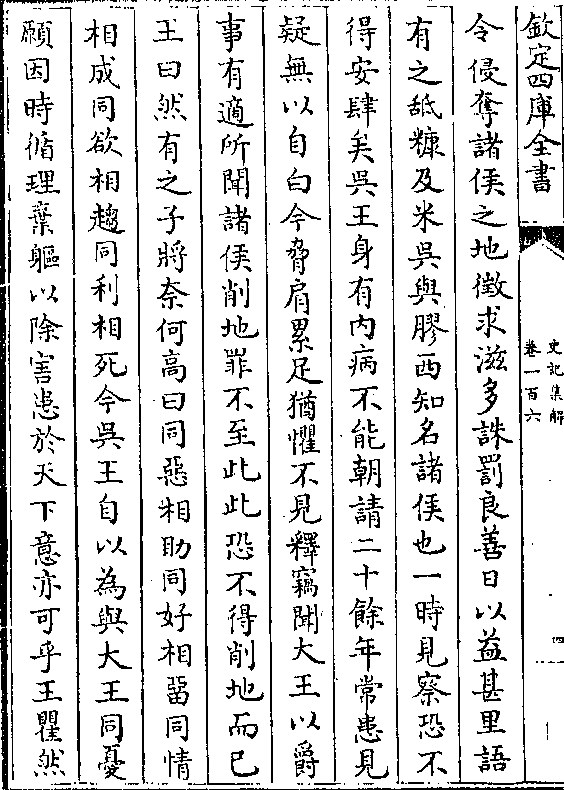 欽定四庫全書
史記集解
卷一百六
四
令侵奪諸侯之地徵求滋多誅罰良善日以益甚里語
有之舐糠及米吳與膠西知名諸侯也一時見察恐不
得安肆矣吳王身有内病不能朝請二十餘年常患見
疑無以自白今脅肩累足猶懼不見釋竊聞大王以爵
事有適所聞諸侯削地罪不至此此恐不得削地而已
王曰然有之子將奈何高曰同惡相助同好相留同情
相成同欲相趨同利相死今吳王自以為與大王同憂
願因時循理棄軀以除害患於天下意亦可乎王瞿然